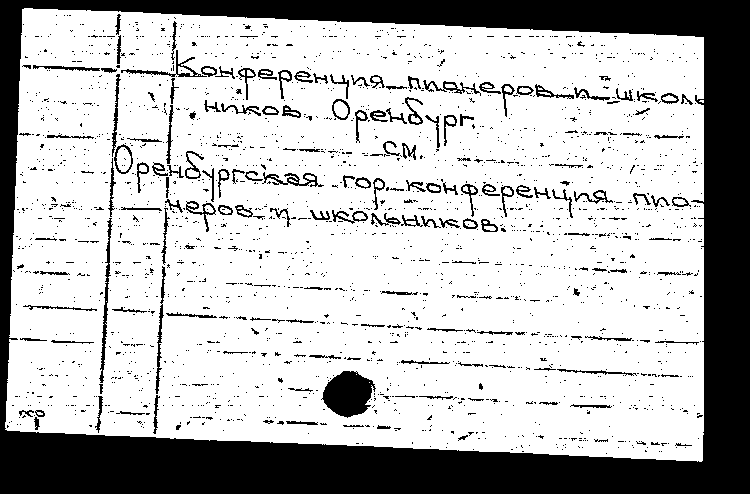 Конференция пионеров и школь
ников. Оренбург.
см.
Оренбургская гор. конференция пио-
неров и школьников.